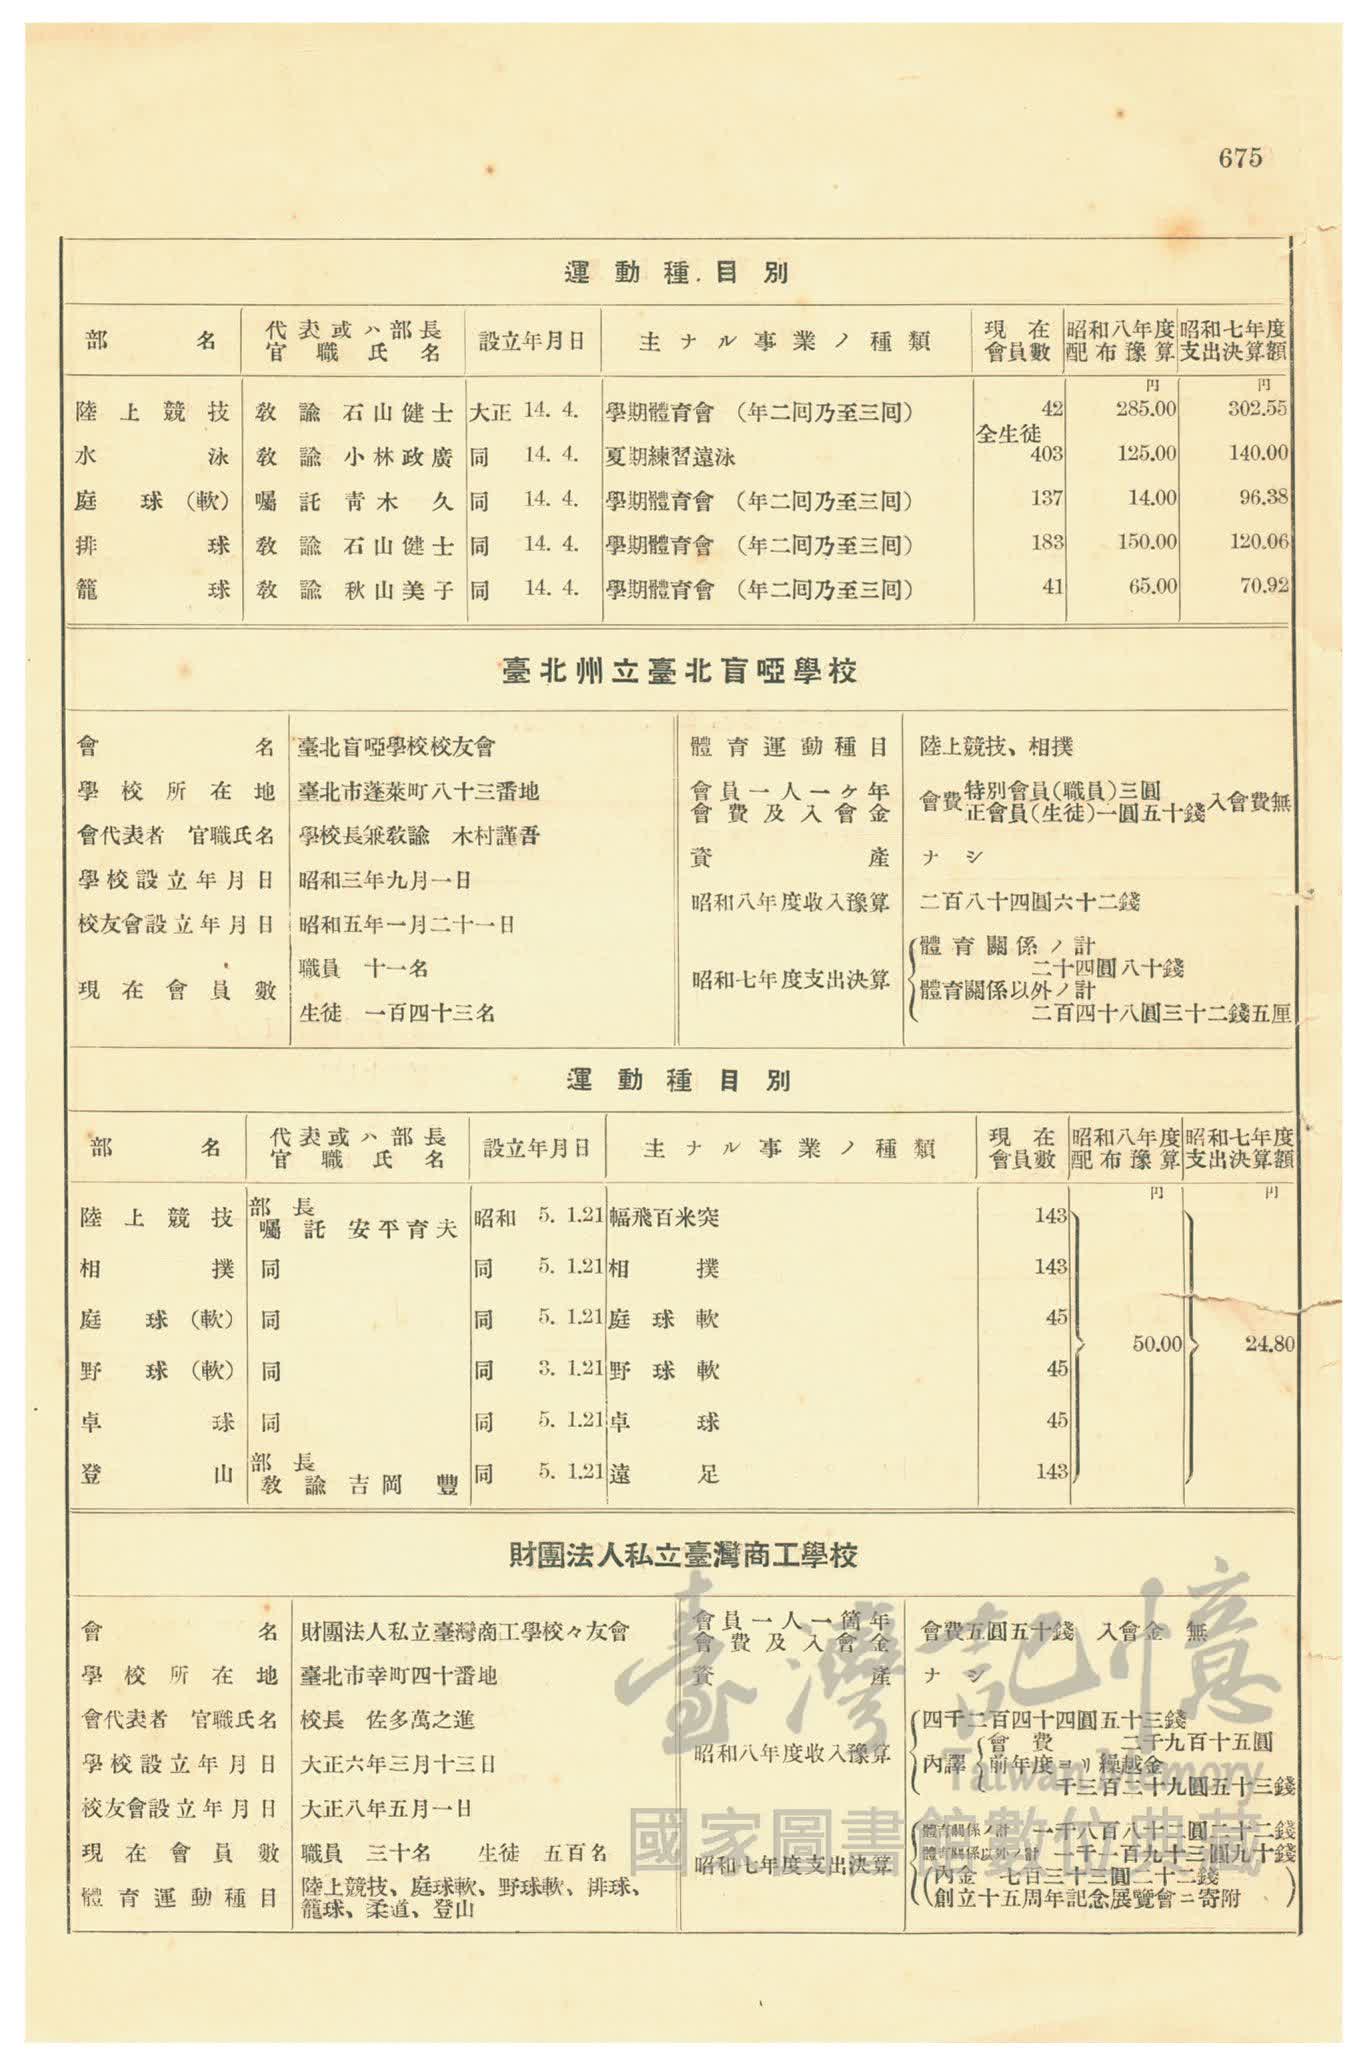 675
運動種目別
部名 代表或ハ部長官職氏名 設立年月日 主ナル事業ノ種類 現在會員數 昭和八年度配布豫算 昭和七年度支出決算額
円 円
陸上競技 敎諭 石山健士 大正 14. 4. 學期體育會 (年二囘乃至三囘) 42 285.00 302.55
水泳 敎諭 小林政廣 同 14. 4. 夏期練習遠泳 全生徒 403 125.00 140.00
庭球(軟) 囑託 靑木久 同 14. 4. 學期體育會 (年二囘乃至三囘) 137 14.00 96.38
排球 敎諭 石山健士 同 14. 4. 學期體育會 (年二囘乃至三囘) 183 150.00 120.06
籠球 敎諭 秋山美子 同 14. 4. 學期體育會 (年二囘乃至三囘) 41 65.00 70.92
臺北州立臺北盲啞學校
會名 臺北盲啞學校校友會
學校所在地 臺北市蓬萊町八十三番地
會代表者 官職氏名 學校長兼敎諭 木村謹吾
學校設立年月日 昭和三年九月一日
校友會設立年月日 昭和五年一月二十一日
現在會員數 職員 十一名
生徒 一百四十三名
體育運動種目 陸上競技、相撲
會員一人一ヶ年會費及入會金 會費 特別會員(職員)三圓 正會員(生徒)一圓五十錢 入會費無
資產 ナシ
昭和八年度收入豫算 二百八十四圓六十二錢
昭和七年度支出決算 體育關係ノ計
二十四圓八十錢
體育關係以外ノ計
二百四十八圓三十二錢五厘
運動種目別
部名 代表或ハ部長官職氏名 設立年月日 主ナル事業ノ種類 現在會員數 昭和八年度配布豫算 昭和七年度支出決算額
円 円
陸上競技 部長 囑託 安平育夫 昭和 5. 1.21 幅飛百米突 143
相撲 同 同 5. 1.21 相撲 143
庭球(軟) 同 同 5. 1.21 庭球軟 45
50.00 24.80
野球(軟) 同 同 3. 1.21 野球軟 45
卓球 同 同 5. 1.21 卓球 45
登山 部長 敎諭 吉岡豐 同 5. 1.21 遠足 143
財團法人私立臺灣商工學校
會名 財團法人私立臺灣商工學校々友會
學校所在地 臺北市幸町四十番地
會代表者 官職氏名 校長 佐多萬之進
學校設立年月日 大正六年三月十三日
校友會設立年月日 大正八年五月一日
現在會員數 職員 三十名 生徒 五百名
體育運動種目 陸上競技、庭球軟、野球軟、排球、
籠球、柔道、登山
會員一人一箇年會費及入會金 會費五圓五十錢 入會金 無
資產 ナシ
昭和八年度收入豫算 四千二百四十四圓五十三錢
內譯 會費 二千九百十五圓
前年度ヨリ繰越金
千三百二十九圓五十三錢
昭和七年度支出決算 體育關係ノ計 一千八百八十二圓二十二錢
體育關係以外ノ計 一千一百九十三圓九十錢
(內金 七百三十三圓二十二錢
創立十五周年記念展覽會ニ寄附)
臺灣記憶
Taiwan Memory
國家圖書館數位典藏